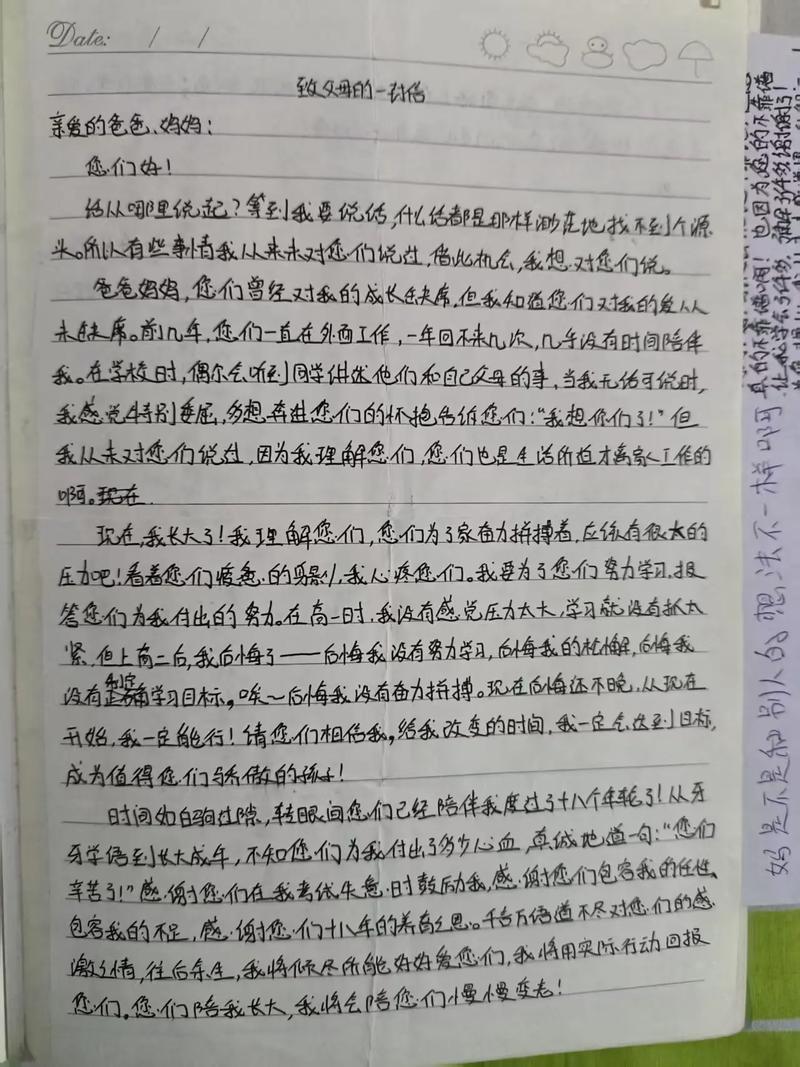 Date: / /
致父母的一封信
亲爱的爸爸、妈妈：
您们好！
话从哪里说起？等到我要说话，什么话都是那样潜在地找不到个源
头。所以有些事情我从来未对您们说过，借此机会，我想对您们说。
爸爸妈妈，您们曾经对我的成长在缺席，但我知道您们对我的爱从
未缺席。前几年，您们一直在外面工作，一年回不来几次，几乎没有时间陪伴
我。在学校时，偶尔会听到同学讲述他们和自己父母的事，当我无话可说时，
我感觉特别委屈，多想奔进您们的怀抱告诉您们：“我想你们了！”但
我从未对您们说过，因为我理解您们，您们也是生活所迫才离家工作的
啊。现在
现在，我长大了！我理解您们，您们为了家奋力拼搏着，应该有很大的
压力吧！看着您们疲惫的身影，我心疼您们。我要为了您们努力学习，报
答您们为我付出的努力。在高一时，我没有感觉压力太大，学习就没有抓太
紧，但上高二后，我后悔了——后悔我没有努力学习，后悔我的松懈，后悔我
没有制定学习目标。唉～后悔我没有奋力拼搏。现在后悔还不晚，从现在
开始，我一定能行！请您们相信我，给我改变的时间，我一定会达到目标，
成为值得您们骄傲的孩子！
时间如白驹过隙，转眼间您们已经陪伴我度过了十八个年轮了！从牙
牙学语到长大成年，不知您们为我付出了多少心血，真诚地道一句：“您们
辛苦了！”感谢您们在我考试失意时鼓励我，感谢您们包容我的任性、
包容我的不足，感谢您们十八年的养育之恩。千言万语道不尽对您们的感
激之情，往后余生，我将倾尽所能好好爱您们，我将用实际行动回报
您们。您们陪我长大，我将会陪您们慢慢变老！
妈是不是和别人的想法不一样啊